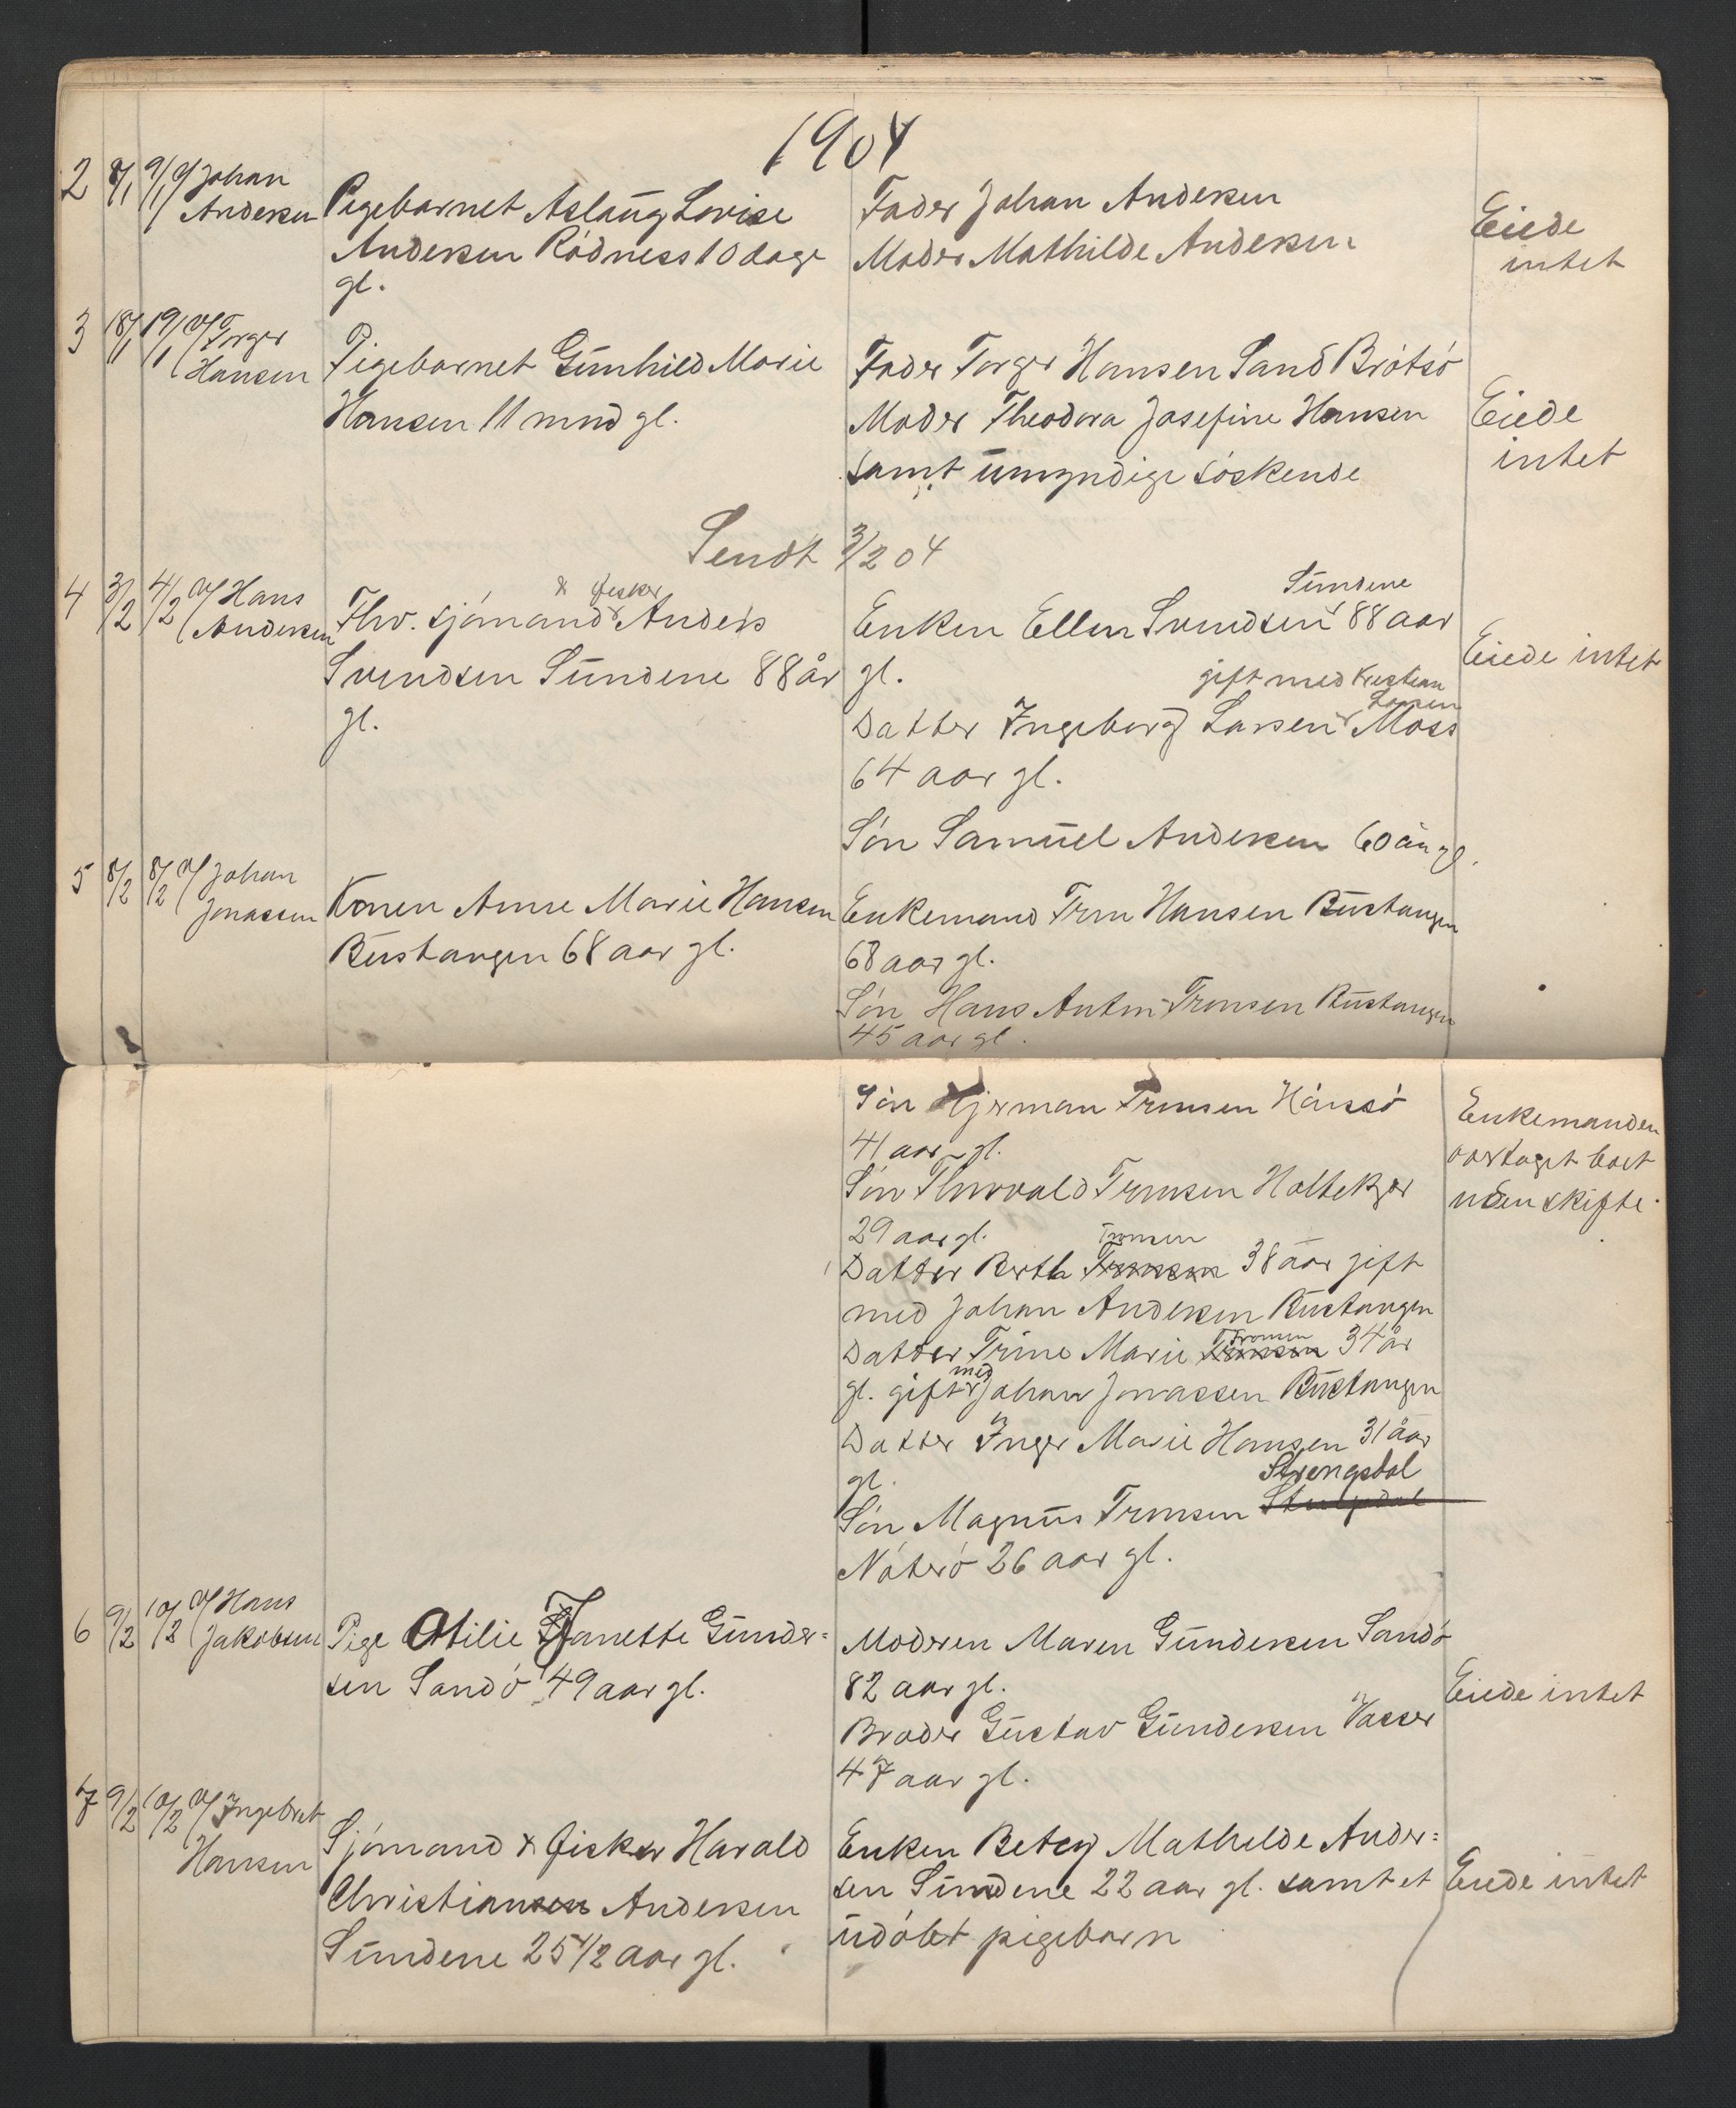 1904
2 8/1 9/1 af Johan
Andersen
Pigebarnet Aslaug Lovise
Andersen Rödness 10 dage
gl.
Fader Johan Andersen
Moder Mathilde Andersen
Eiede
intet
3 18/1 19/1 af Torger
Hansen
Pigebarnet Gunhild Marie
Hansen 11 mnd gl.
Fader Torger Hansen Sand Brötsö
Moder Theodora Josefine Hansen
samt umyndige söskende
Eiede
intet
Sendt 3/2 04
4 3/2 4/2 af Hans
Andersen
& fisker
Fhv. sjömand Anders
Svendsen Sundene 88 år
gl.
Sundene
Enken Ellen Svendsen 88 aar
gl.
gift med Kristian
Larsen
Datter Ingeborg Larsen Moss
64 aar gl.
Sön Samuel Andersen 60 år gl.
Eiede intet
5 8/2 8/2 af Johan
Jonassen
Konen Anne Marie Hansen
Bustangen 68 aar gl.
Enkemand Tron Hansen Bustangen
68 aar gl.
Sön Hans Anton Tronsen Bustangen
45 aar gl.
Sön Hjerman Tronsen Hönsö
41 aar gl.
Sön Thorvald Tronsen Holtekjær
29 aar gl.
Tronsen
Datter Berthe 38 aar gift
med Johan Andersen Bustangen
Tronsen
Datter Trine Marie 34 år
med
gl. gift Johan Jonassen Bustangen
Datter Inger Marie Hansen 31 aar
gl.
Strengsdal
Sön Magnus Tronsen
Nöterö 26 aar gl.
Enkemanden
overtaget boet
uden skifte.
6 9/2 10/2 af Hans
Jakobsen
Pige Otilie Janette Gunder=
sen Sandö 49 aar gl.
Moderen Maren Gundersen Sandö
82 aar gl.
Broder Gustav Gundersen Vasser
47 aar gl.
Eiede intet
7 9/2 10/2 af Ingebret
Hansen
Sjömand & fisker Harald
Christiansen Andersen
Sundene 25 1/2 aar gl.
Enken Betsy Mathilde Ander=
sen Sundene 22 aar gl. samt et
udöbt pigebarn
Eiede intet